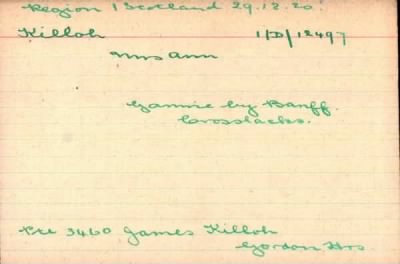 Region 1 Scotland 29.12.20.
Killoh 1/D/12497
Mrs Ann
Gamrie by Banff.
Crosslacks.
Pte 3460 James Killoh
Gordon Hrs